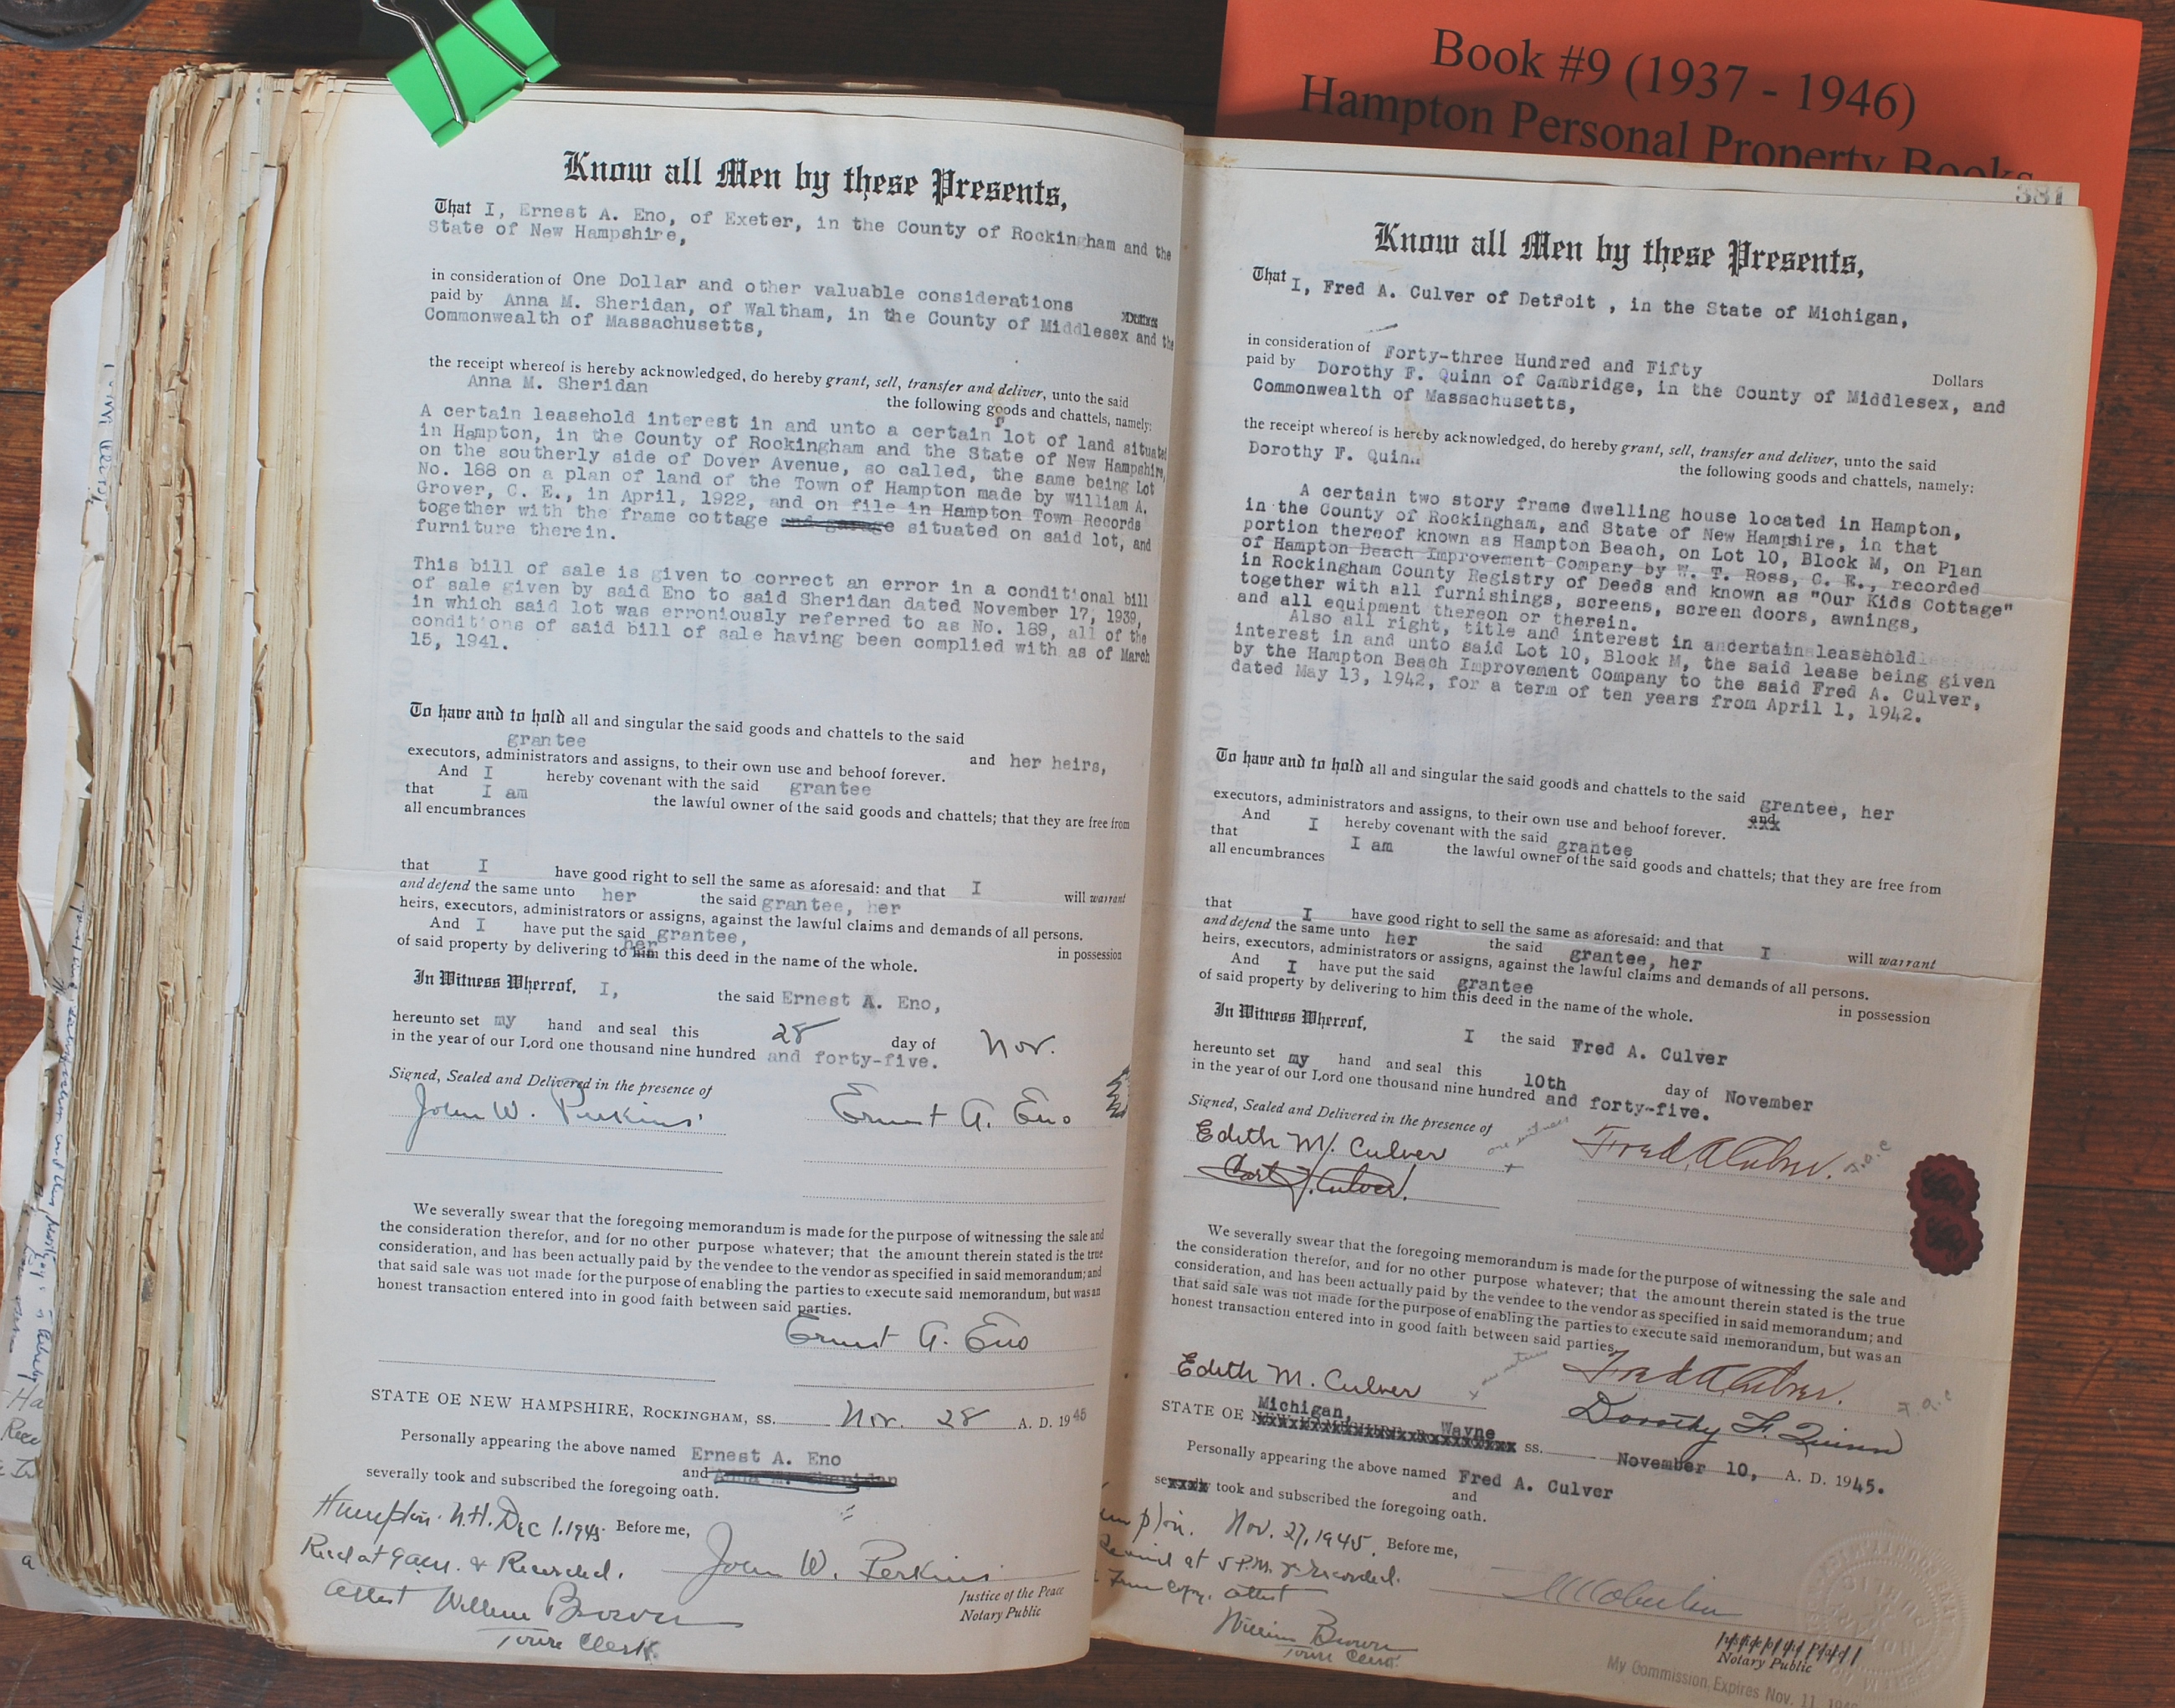 Book #9 (1937 - 1946)
Hampton Personal Property Books
Know all Men by these Presents,
That I, Ernest A. Eno, of Exeter, in the County of Rockingham and the
State of New Hampshire,
in consideration of One Dollar and other valuable considerations
paid by Anna M. Sheridan, of Waltham, in the County of Middlesex and the
Commonwealth of Massachusetts,
the receipt whereof is hereby acknowledged, do hereby grant, sell, transfer and deliver, unto the said
Anna M. Sheridan
the following goods and chattels, namely:
A certain leasehold interest in and unto a certain lot of land situated
in Hampton, in the County of Rockingham and the State of New Hampshire,
on the southerly side of Dover Avenue, so called, the same being Lot
No. 188 on a plan of land of the Town of Hampton made by William A.
Grover, C. E., in April, 1922, and on file in Hampton Town Records
together with the frame cottage and garage situated on said lot, and
furniture therein.
This bill of sale is given to correct an error in a conditional bill
of sale given by said Eno to said Sheridan dated November 17, 1939,
in which said lot was erroniously referred to as No. 189, all of the
conditions of said bill of sale having been complied with as of March
15, 1941.
To have and to hold all and singular the said goods and chattels to the said
grantee and her heirs,
executors, administrators and assigns, to their own use and behoof forever.
And I hereby covenant with the said grantee
that I am the lawful owner of the said goods and chattels; that they are free from
all encumbrances
that I have good right to sell the same as aforesaid: and that I will warrant
and defend the same unto her the said grantee, her
heirs, executors, administrators or assigns, against the lawful claims and demands of all persons.
And I have put the said grantee, in possession
of said property by delivering to him her this deed in the name of the whole.
In Witness Whereof, I, the said Ernest A. Eno,
hereunto set my hand and seal this 28 day of Nov.
in the year of our Lord one thousand nine hundred and forty-five.
Signed, Sealed and Delivered in the presence of
John W. Perkins Ernest A. Eno
We severally swear that the foregoing memorandum is made for the purpose of witnessing the sale and
the consideration therefor, and for no other purpose whatever; that the amount therein stated is the true
consideration, and has been actually paid by the vendee to the vendor as specified in said memorandum; and
that said sale was not made for the purpose of enabling the parties to execute said memorandum, but was an
honest transaction entered into in good faith between said parties.
Ernest A. Eno
STATE OF NEW HAMPSHIRE, ROCKINGHAM, SS. Nov. 28 A. D. 1945
Personally appearing the above named Ernest A. Eno
and Anna M. Sheridan
severally took and subscribed the foregoing oath.
Hampton. N.H. Dec 1. 1945. Before me,
Recd at 9 a.m. & Recorded. John W. Perkins
Attest William Brown Justice of the Peace
Town Clerk Notary Public
381
Know all Men by these Presents,
That I, Fred A. Culver of Detroit , in the State of Michigan,
in consideration of Forty-three Hundred and Fifty Dollars
paid by Dorothy F. Quinn of Cambridge, in the County of Middlesex, and
Commonwealth of Massachusetts,
the receipt whereof is hereby acknowledged, do hereby grant, sell, transfer and deliver, unto the said
Dorothy F. Quinn
the following goods and chattels, namely:
A certain two story frame dwelling house located in Hampton,
in the County of Rockingham, and State of New Hampshire, in that
portion thereof known as Hampton Beach, on Lot 10, Block M, on Plan
of Hampton Beach Improvement Company by W. T. Ross, C. E., recorded
in Rockingham County Registry of Deeds and known as "Our Kids Cottage"
together with all furnishings, screens, screen doors, awnings,
and all equipment thereon or therein.
Also all right, title and interest in a certain leasehold
interest in and unto said Lot 10, Block M, the said lease being given
by the Hampton Beach Improvement Company to the said Fred A. Culver,
dated May 13, 1942, for a term of ten years from April 1, 1942.
To have and to hold all and singular the said goods and chattels to the said
grantee, her
and
executors, administrators and assigns, to their own use and behoof forever.
And I hereby covenant with the said grantee
that I am the lawful owner of the said goods and chattels; that they are free from
all encumbrances
that I have good right to sell the same as aforesaid: and that I will warrant
and defend the same unto her the said grantee, her
heirs, executors, administrators or assigns, against the lawful claims and demands of all persons.
And I have put the said grantee in possession
of said property by delivering to him this deed in the name of the whole.
In Witness Whereof, I the said Fred A. Culver
hereunto set my hand and seal this 10th day of November
in the year of our Lord one thousand nine hundred and forty-five.
Signed, Sealed and Delivered in the presence of
Edith M. Culver one witness Fred A Culver. F.A.C
Culver.
We severally swear that the foregoing memorandum is made for the purpose of witnessing the sale and
the consideration therefor, and for no other purpose whatever; that the amount therein stated is the true
consideration, and has been actually paid by the vendee to the vendor as specified in said memorandum; and
that said sale was not made for the purpose of enabling the parties to execute said memorandum, but was an
honest transaction entered into in good faith between said parties.
Edith M. Culver Fred A Culver. F.A.C
Dorothy F. Quinn
STATE OF Michigan, Wayne ss. November 10, A. D. 1945.
Personally appearing the above named Fred A. Culver
and
took and subscribed the foregoing oath.
Nov. 27, 1945. Before me,
at 5 P.M. & recorded.
True Copy. attest
William Brown
Town Clerk
Justice of the Peace
Notary Public
My Commission Expires Nov. 11,